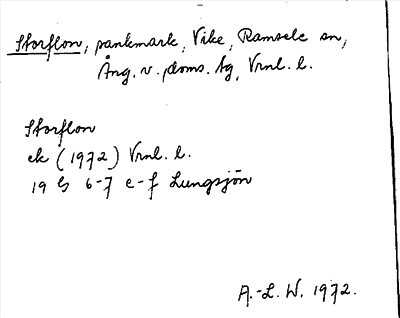 Storflon, sankmark, Vike, Ramsele sn,
Ång. v. doms. tg, Vrnl. l.
Storflon
ek (1972) Vrnl. l.
19 G 6-7 e-f Lungsjön
A.-L. W. 1972.